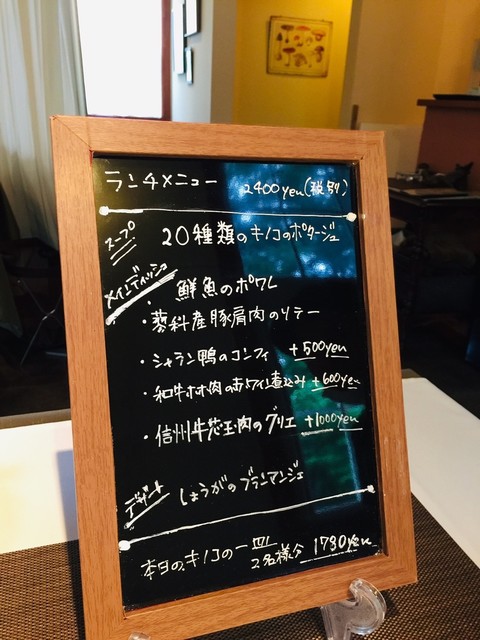 ランチメニュー 2400yen(税別)
スープ 20種類のキノコのポタージュ
メインディッシュ
・鮮魚のポワレ
・蓼科産豚肩肉のソテー
・シャラン鴨のコンフィ +500yen
・和牛ホホ肉の赤ワイン煮込み +600yen
・信州牛芯玉肉のグリエ +1000yen
デザート しょうがのブランマンジェ
本日のキノコの一皿 2名様分 1730yen